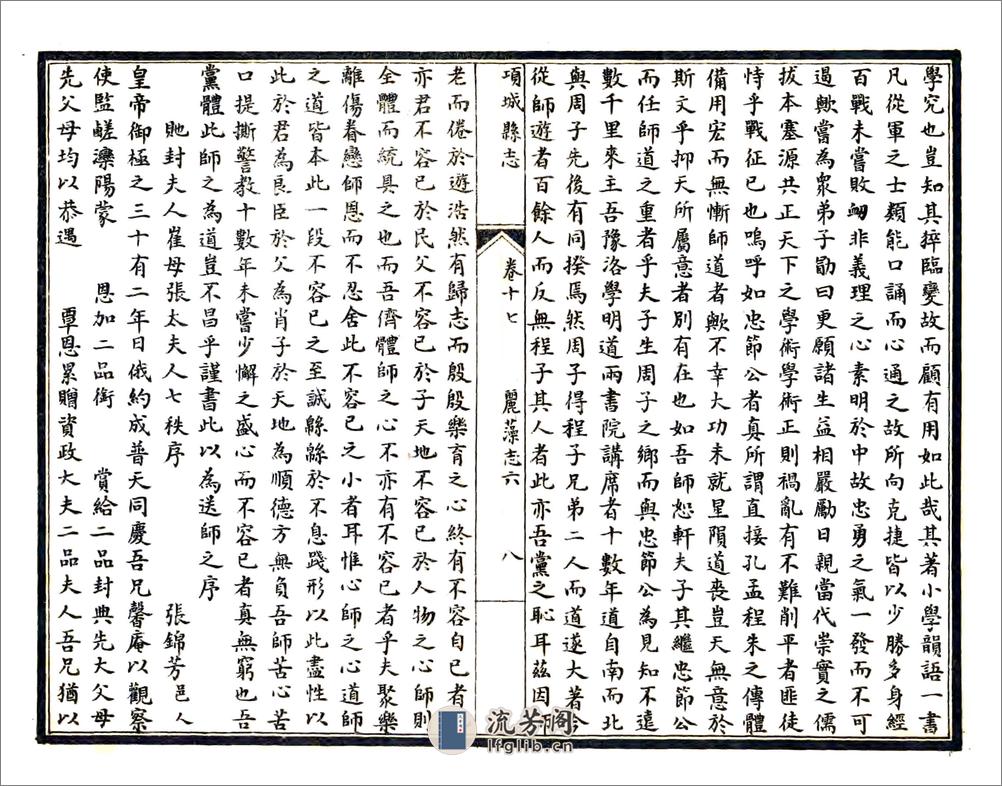 學究也豈知其猝臨變故而顧有用如此哉其著小學韻語一書
凡從軍之士類能口誦而心通之故所向克捷皆以少勝多身經
百戰未嘗敗衄非義理之心素明於中故忠勇之氣一發而不可
遏歟嘗為眾弟子勖曰更願諸生益相嚴勵日親當代崇實之儒
拔本塞源共正天下之學術學術正則禍亂有不難削平者匪徒
恃乎戰征已也嗚呼如忠節公者真所謂直接孔孟程朱之傳體
備用宏而無慚師道者歟不幸大功未就星隕道喪豈天無意於
斯文乎抑天所屬意者別有在也如吾師恕軒夫子其繼忠節公
而任師道之重者乎夫子生周子之鄉而與忠節公為見知不遠
數千里來主吾豫洛學明道兩書院講席者十數年道自南而北
與周子先後有同揆焉然周子得程子兄弟二人而道遂大著今
從師遊者百餘人而反無程子其人者此亦吾黨之恥耳茲因師
項城縣志 卷十七 麗藻志六 八
老而倦於遊浩然有歸志而殷殷樂育之心終有不容自已者蓋
亦君不容已於民父不容已於子天地不容已於人物之心師則
全體而統具之也而吾儕體師之心不亦有不容已者乎夫聚樂
離傷眷戀師恩而不忍舍此不容已之小者耳惟心師之心道師
之道皆本此一段不容已之至誠緜緜於不息踐形以此盡性以
此於君為良臣於父為肖子於天地為順德方無負吾師苦心苦
口提撕警教十數年未嘗少懈之盛心而不容已者真無窮也吾
黨體此師之為道豈不昌乎謹書此以為送師之序
貤封夫人崔母張太夫人七秩序 張錦芳邑人
皇帝御極之三十有二年日俄約成普天同慶吾兄馨庵以觀察
使監鹺灤陽蒙 恩加二品銜 賞給二品封典先大父母
先父母均以恭遇 覃恩累贈資政大夫二品夫人吾兄猶以
流芳閣
lfglib.cn